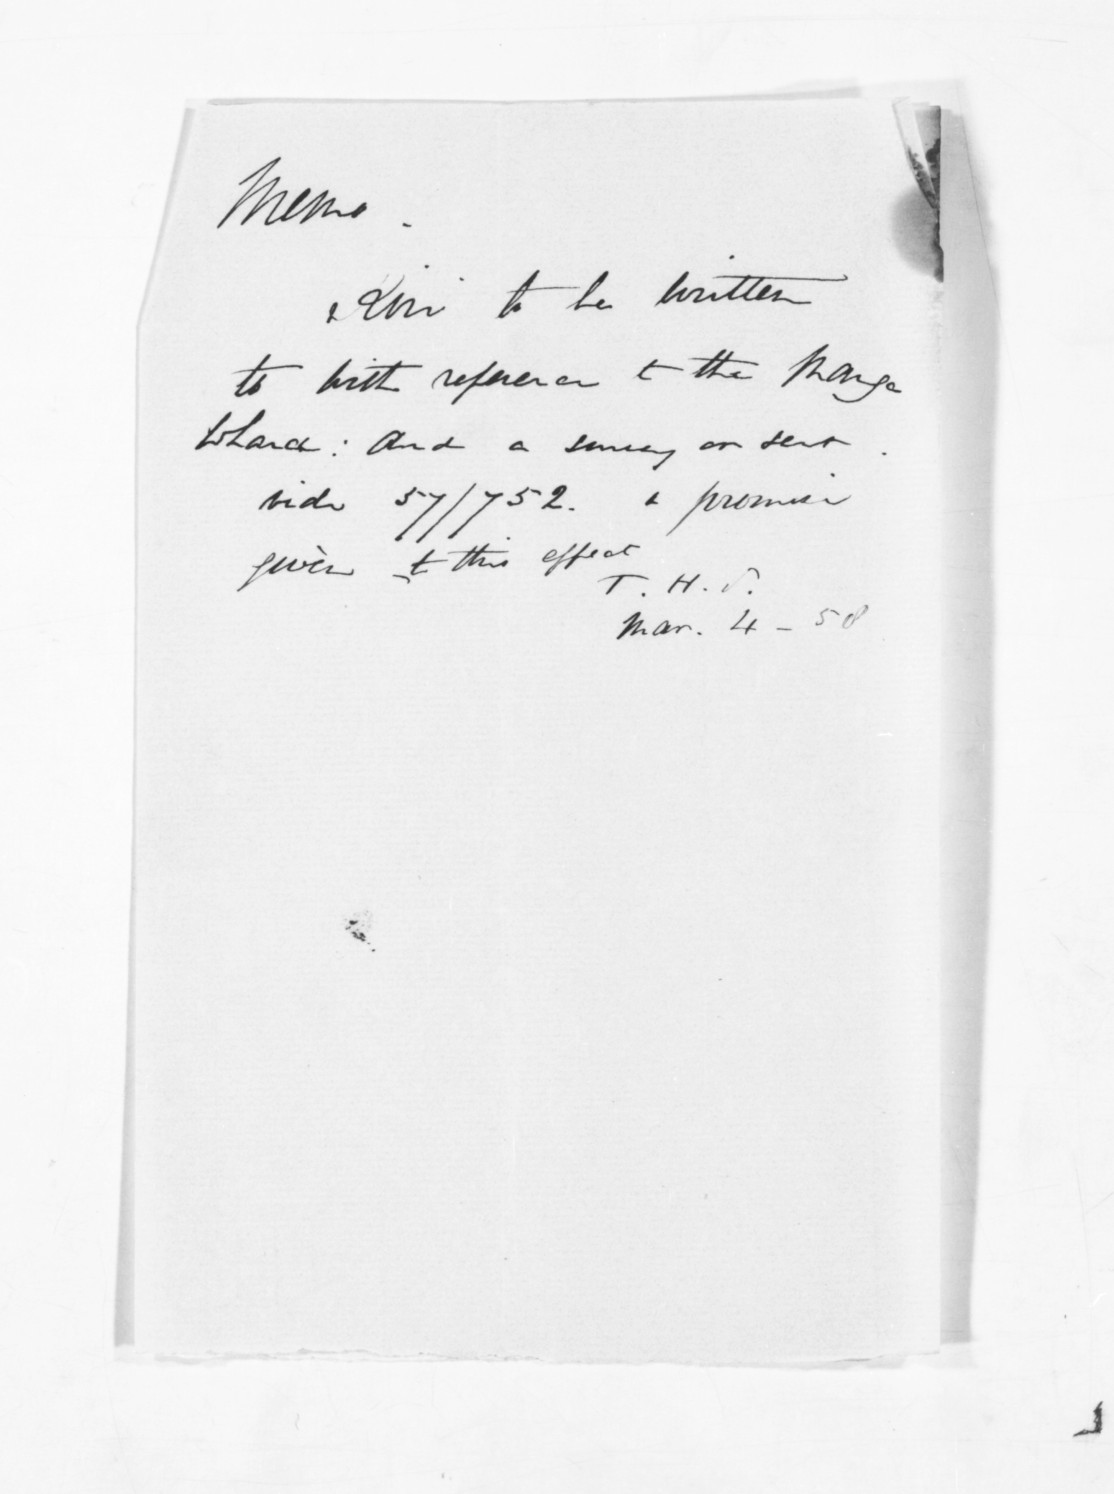 Memo.
Kivi to be written
to with reference to the Manga
Whard: And a survey or sent.
vide 57/752. a promise
given to this effect
T. H. S.
Mar. 4 - 58